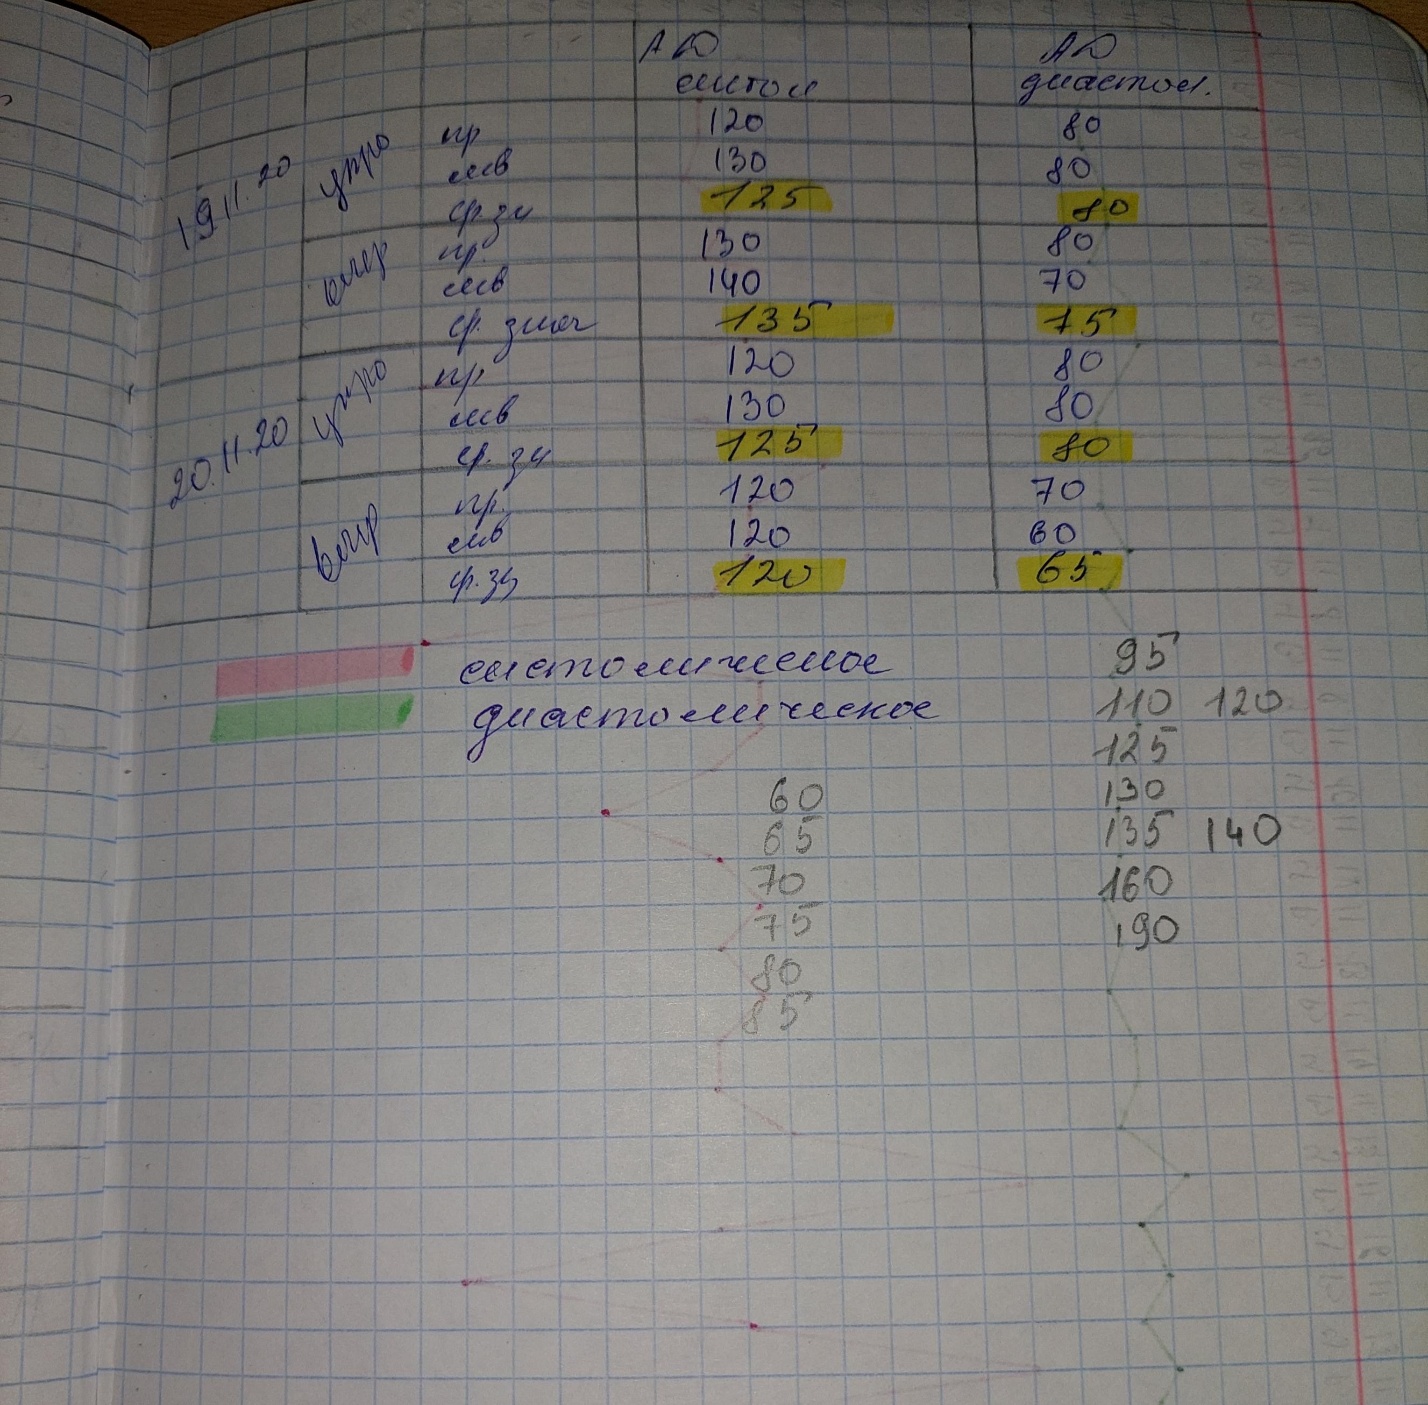 АД АД
систол диастол.
19.11.20 утро пр 120 80
лев 130 80
ср. зн 125 80
вечер пр. 130 80
лев 140 70
ср. знач 135 75
20.11.20 утро пр 120 80
лев 130 80
ср. зн 125 80
вечер пр. 120 70
лев 120 60
ср. зн 120 65
систолическое
диастолическое
95
110 120
125
130
135 140
160
190
60
65
70
75
80
85